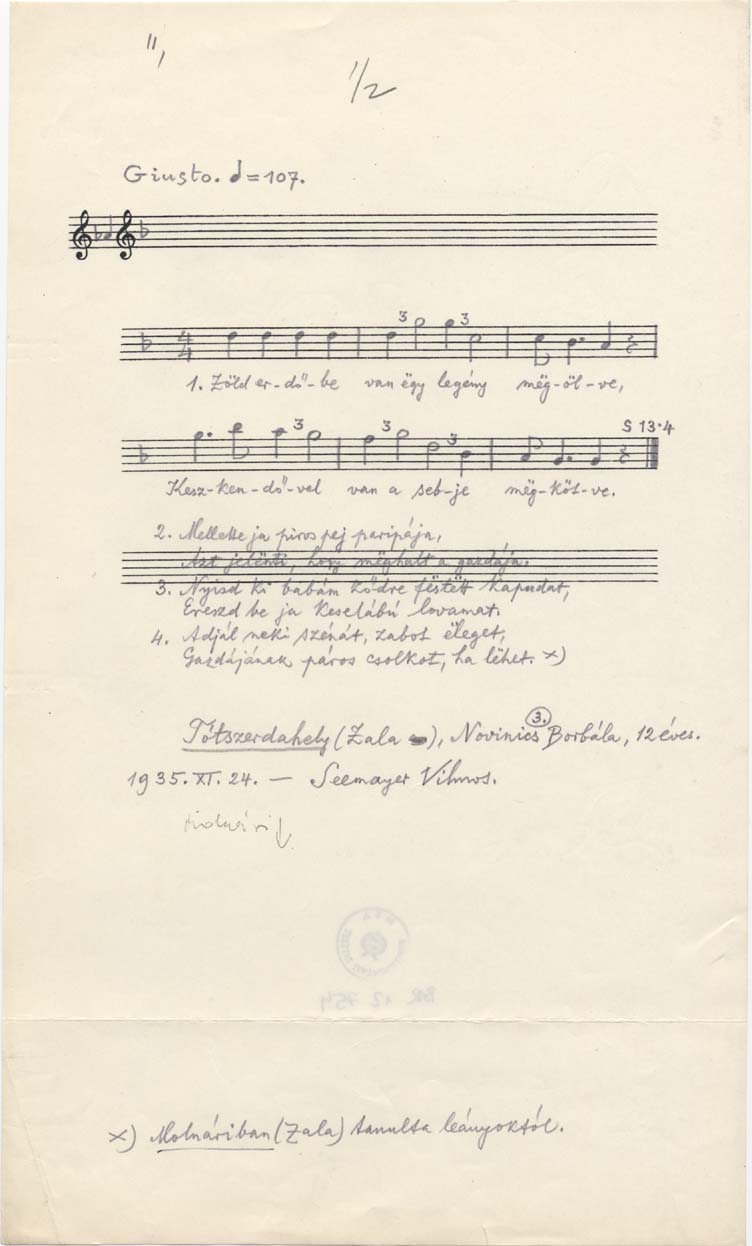 11,
1/2
Giusto. = 107.
4/4
3 3
1. Zöld er-dő-be van ëgy legény mëg-öl-ve,
3 3 3 S 13·4
Kesz-ken-dő-vel van a seb-je mëg-köt-ve.
2. Mellette ja piros pej paripája,
Azt jelënti, hogy mëghalt a gazdája.
3. Nyisd ki babám ződre fëstëtt kapudat,
Ereszd be ja keselábú lovamat.
4. Adjál neki szénát, zabot ëleget,
Gazdájának páros csolkot, ha lëhet. x)
3.
Tótszerdahely (Zala ), Novinics Borbála, 12 éves.
1935. XI. 24. — Seemayer Vilmos.
Molnári ↓
BR 12 754
x) Molnáriban (Zala) tanulta leányoktól.